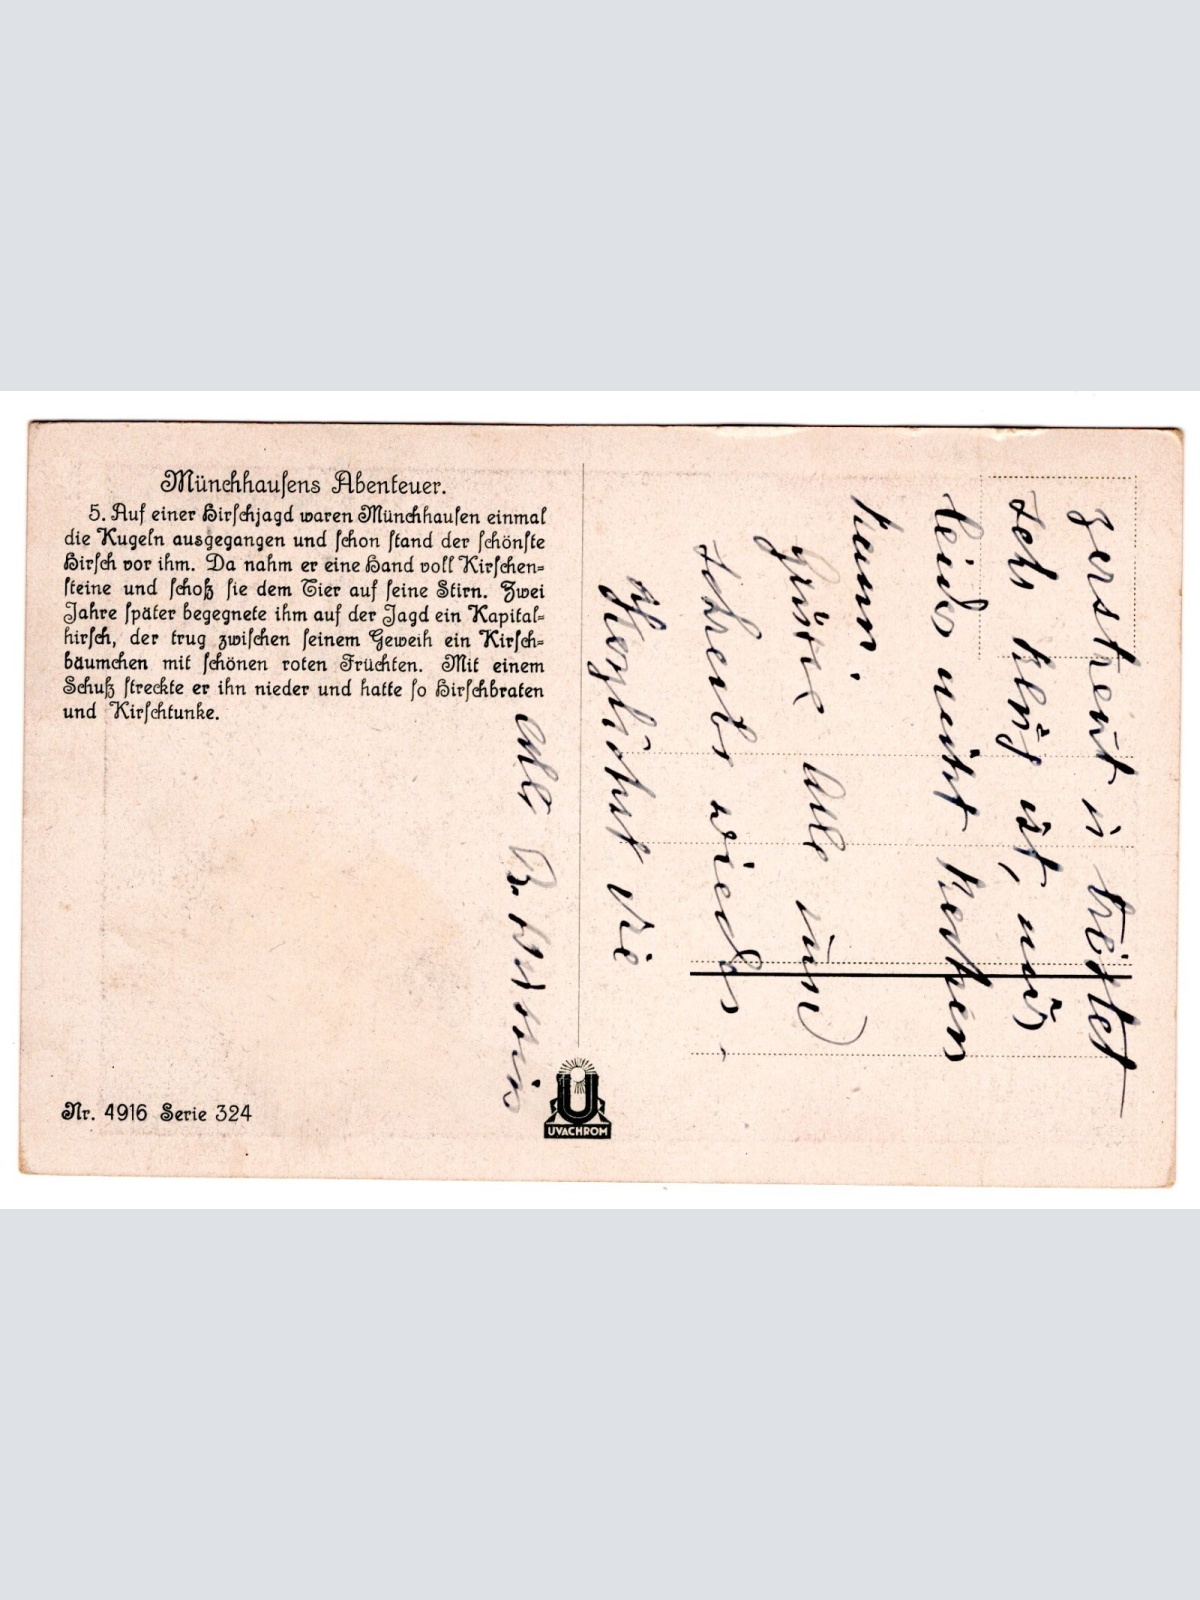 Münchhausens Abenteuer.
5. Auf einer Hirschjagd waren Münchhausen einmal
die Kugeln ausgegangen und schon stand der schönste
Hirsch vor ihm. Da nahm er eine Hand voll Kirschen-
steine und schoß sie dem Tier auf seine Stirn. Zwei
Jahre später begegnete ihm auf der Jagd ein Kapital-
hirsch, der trug zwischen seinem Geweih ein Kirsch-
bäumchen mit schönen roten Früchten. Mit einem
Schuß streckte er ihn nieder und hatte so Hirschbraten
und Kirschtunke.
Nr. 4916 Serie 324
U
UVACHROM
zerstreut u
ist, nur
leider nicht
kann.
Grüsse alle und
schreib wieder.
Herzlichst die